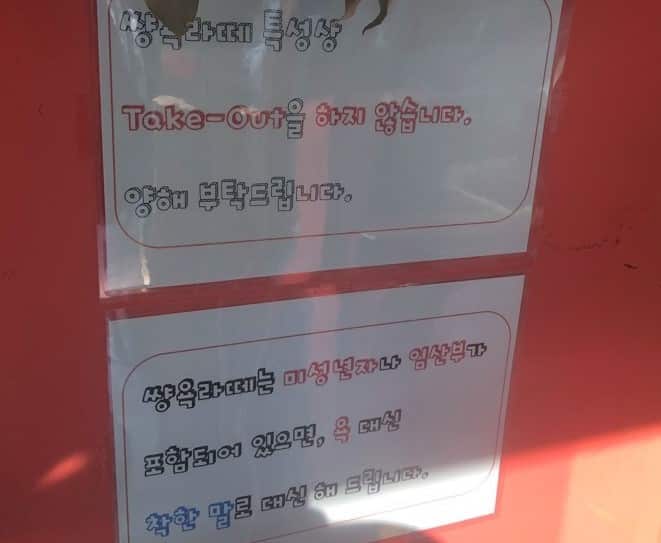 쌍욕라떼 특성상
Take-Out을 하지 않습니다.
양해 부탁드립니다.
쌍욕라떼는 미성년자나 임산부가
포함되어 있으면, 욕 대신
착한 말로 대신 해 드립니다.